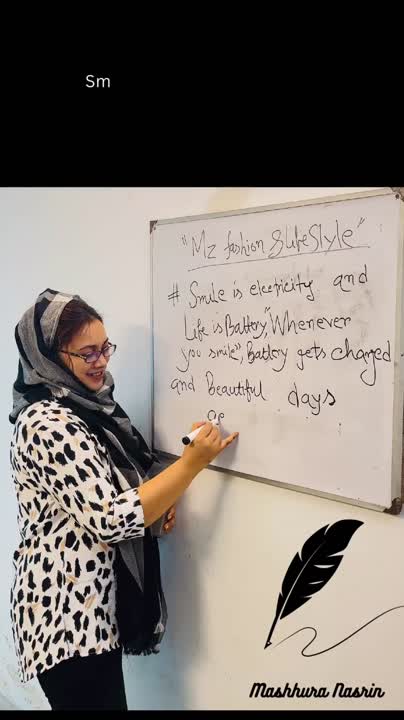 Sm
"Mz fashion & lifeStyle"
# Smile is electricity and
Life is Battery," Whenever
you smile", Battery gets charged
and Beautiful days
Mashhura Nasrin